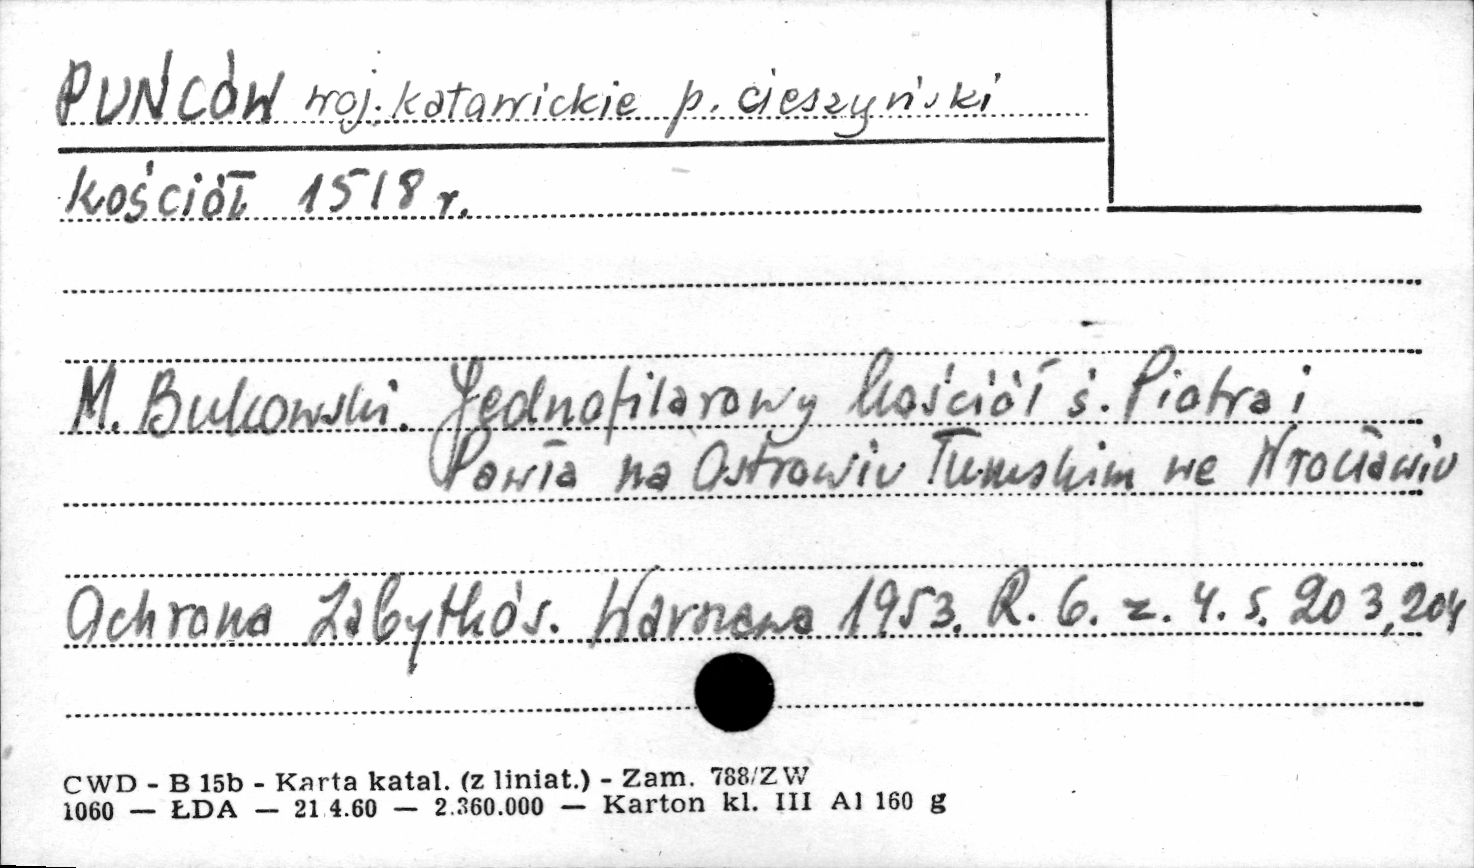 PUŃCÓW woj. katowickie p. cieszyński
kościół 1518 r.
M. Bukowski. Jednofilarowy kościół ś. Piotra i
Pawła na Ostrowiu Tumskim we Wrocławiu
Ochrona Zabytków. Warszawa 1953. R. 6. z. 4. s. 203,204
CWD - B 15b - Karta katal. (z liniat.) - Zam. 788/ZW
1060 — ŁDA — 21.4.60 — 2.360.000 — Karton kl. III A1 160 g